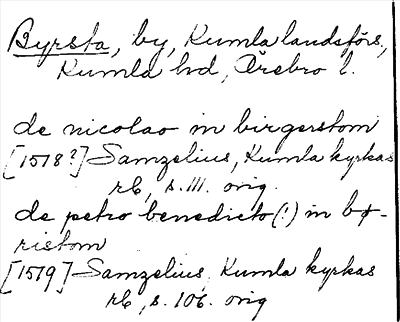 Byrsta, by, Kumla landsförs.,
Kumla hd, Örebro l.
de nicolao in birgerstom
[1518?] Samzelius, Kumla kyrkas
rb, s. 111. orig.
de petro benedicto (!) in bø-
ristom
[1519] Samzelius, Kumla kyrkas
rb, s. 106. orig